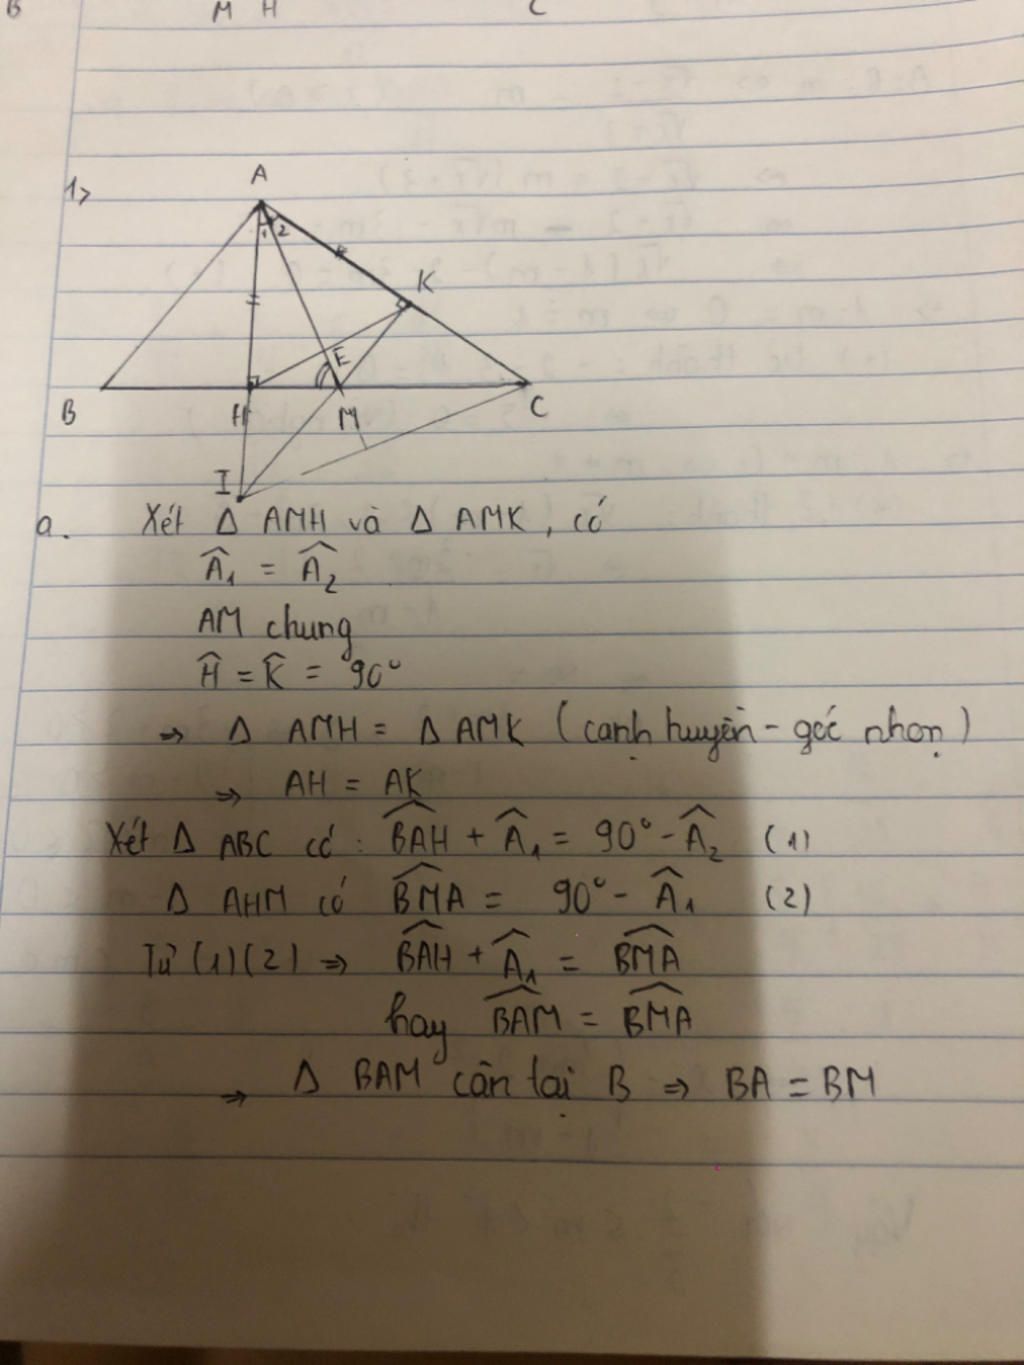 B M H C
1>
A
1 2
K
E
B H M C
I
a. Xét Δ AMH và Δ AMK, có
Â₁ = Â₂
AM chung
Ĥ = K̂ = 90°
=> Δ AMH = Δ AMK (cạnh huyền - góc nhọn)
=> AH = AK
Xét Δ ABC có: \widehat{BAH} + Â₁ = 90° - Â₂ (1)
Δ AHM có \widehat{BMA} = 90° - Â₁ (2)
Từ (1)(2) => \widehat{BAH} + Â₁ = \widehat{BMA}
hay \widehat{BAM} = \widehat{BMA}
=> Δ BAM cân tại B => BA = BM